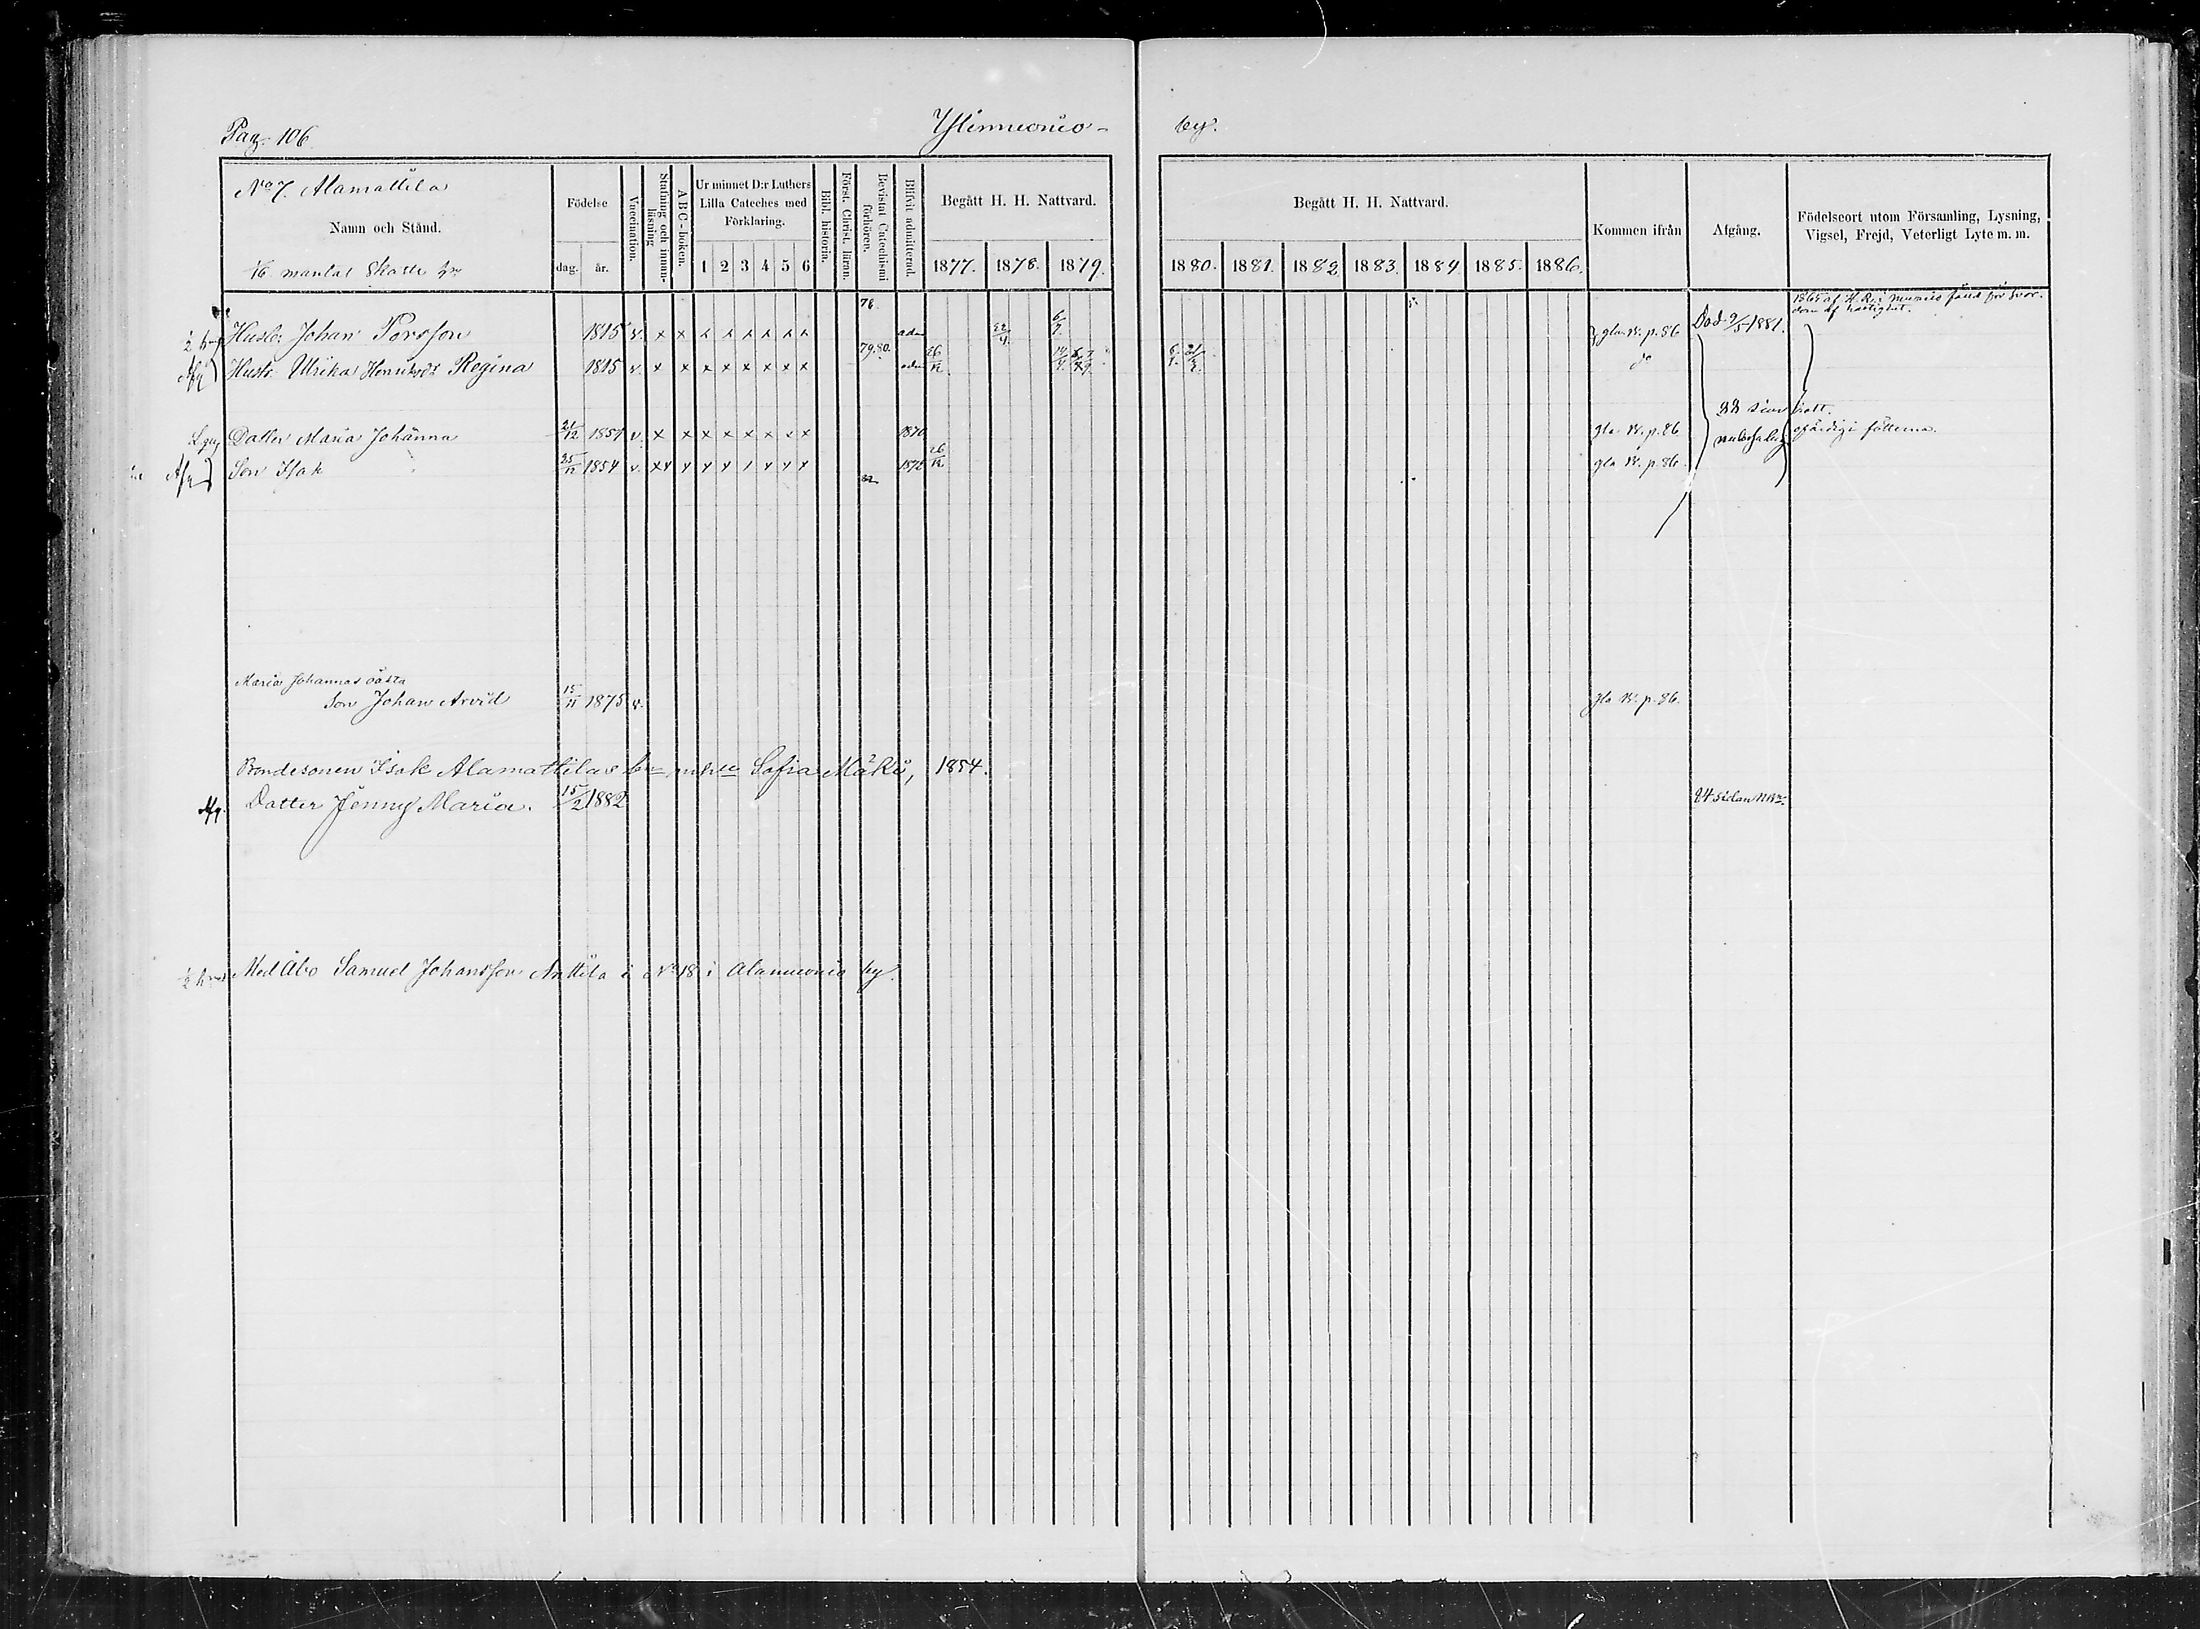 Pag. 106
Ylimuonio-
by.
No 7. Alamattila
Namn och Stånd.
1/6 mantal Skatte hn
Födelse
dag.
år.
Vaccination.
Stafning och innan-läsning
ABC-boken.
Ur minnet D:r Luthers
Lilla Cateches med
Förklaring.
1 2 3 4 5 6
Bibl. historia.
Först. Christ. läran.
Bevistat Catechismi förhören.
Blifvit admitterad.
Begått H. H. Nattvard.
1877. 1878. 1879.
Begått H. H. Nattvard.
1880. 1881. 1882 1883. 1884 1885. 1886.
Kommen ifrån
Afgång.
Födelseort utom Församling, Lysning,
Vigsel, Frejd, Veterligt Lyte m. m.
78.
Husb: Johan 1815 v. x x x x x x x x adm 22/4 6/7. gla B. p. 86 Död 9/5 1881.
79.80.
Hustr. Ulrika Henriksdr Regina 1815 v. x x x x x x x x adm 26/12
Dotter Maria Johanna 21/12 1851 v. x x x x x x x x 1870 gla B. p. 86 ofärdig i fötterna.
Son Isak 25/11 1854 v. x x x x x x x x 26/12 gla B. p. 86.
Maria Johannas oäkta
Son Johan Arvid 15/11 1875 v. gla B. p. 86.
Bondesonen Isak Alamattilas Sofia Mäki, 1854.
Dotter Jenny Maria. 15/2 1882 84 sidan
Med Åbo Samuel Johansson Anttila i No 18 i Alamuonio by.